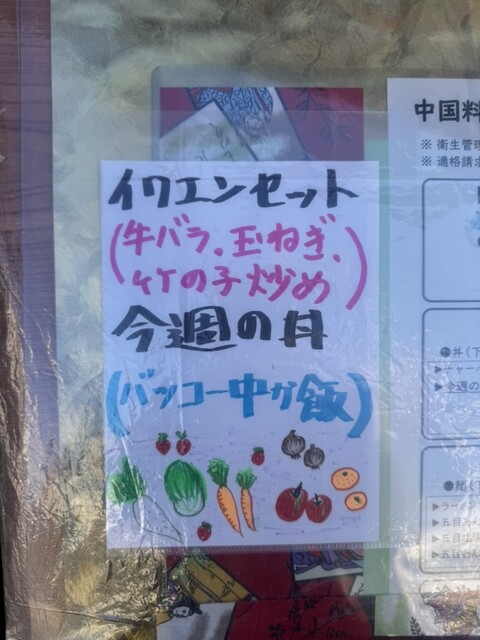 イワエンセット
(牛バラ、玉ねぎ、
竹の子炒め)
今週の丼
(バッコー中か飯)
中国料
※ 衛生管理
※ 適格請求
●丼(下
▶チャーハ
▶今週の
●麺(
▶ラーメン
▶五目あん
▶五目塩
▶五目